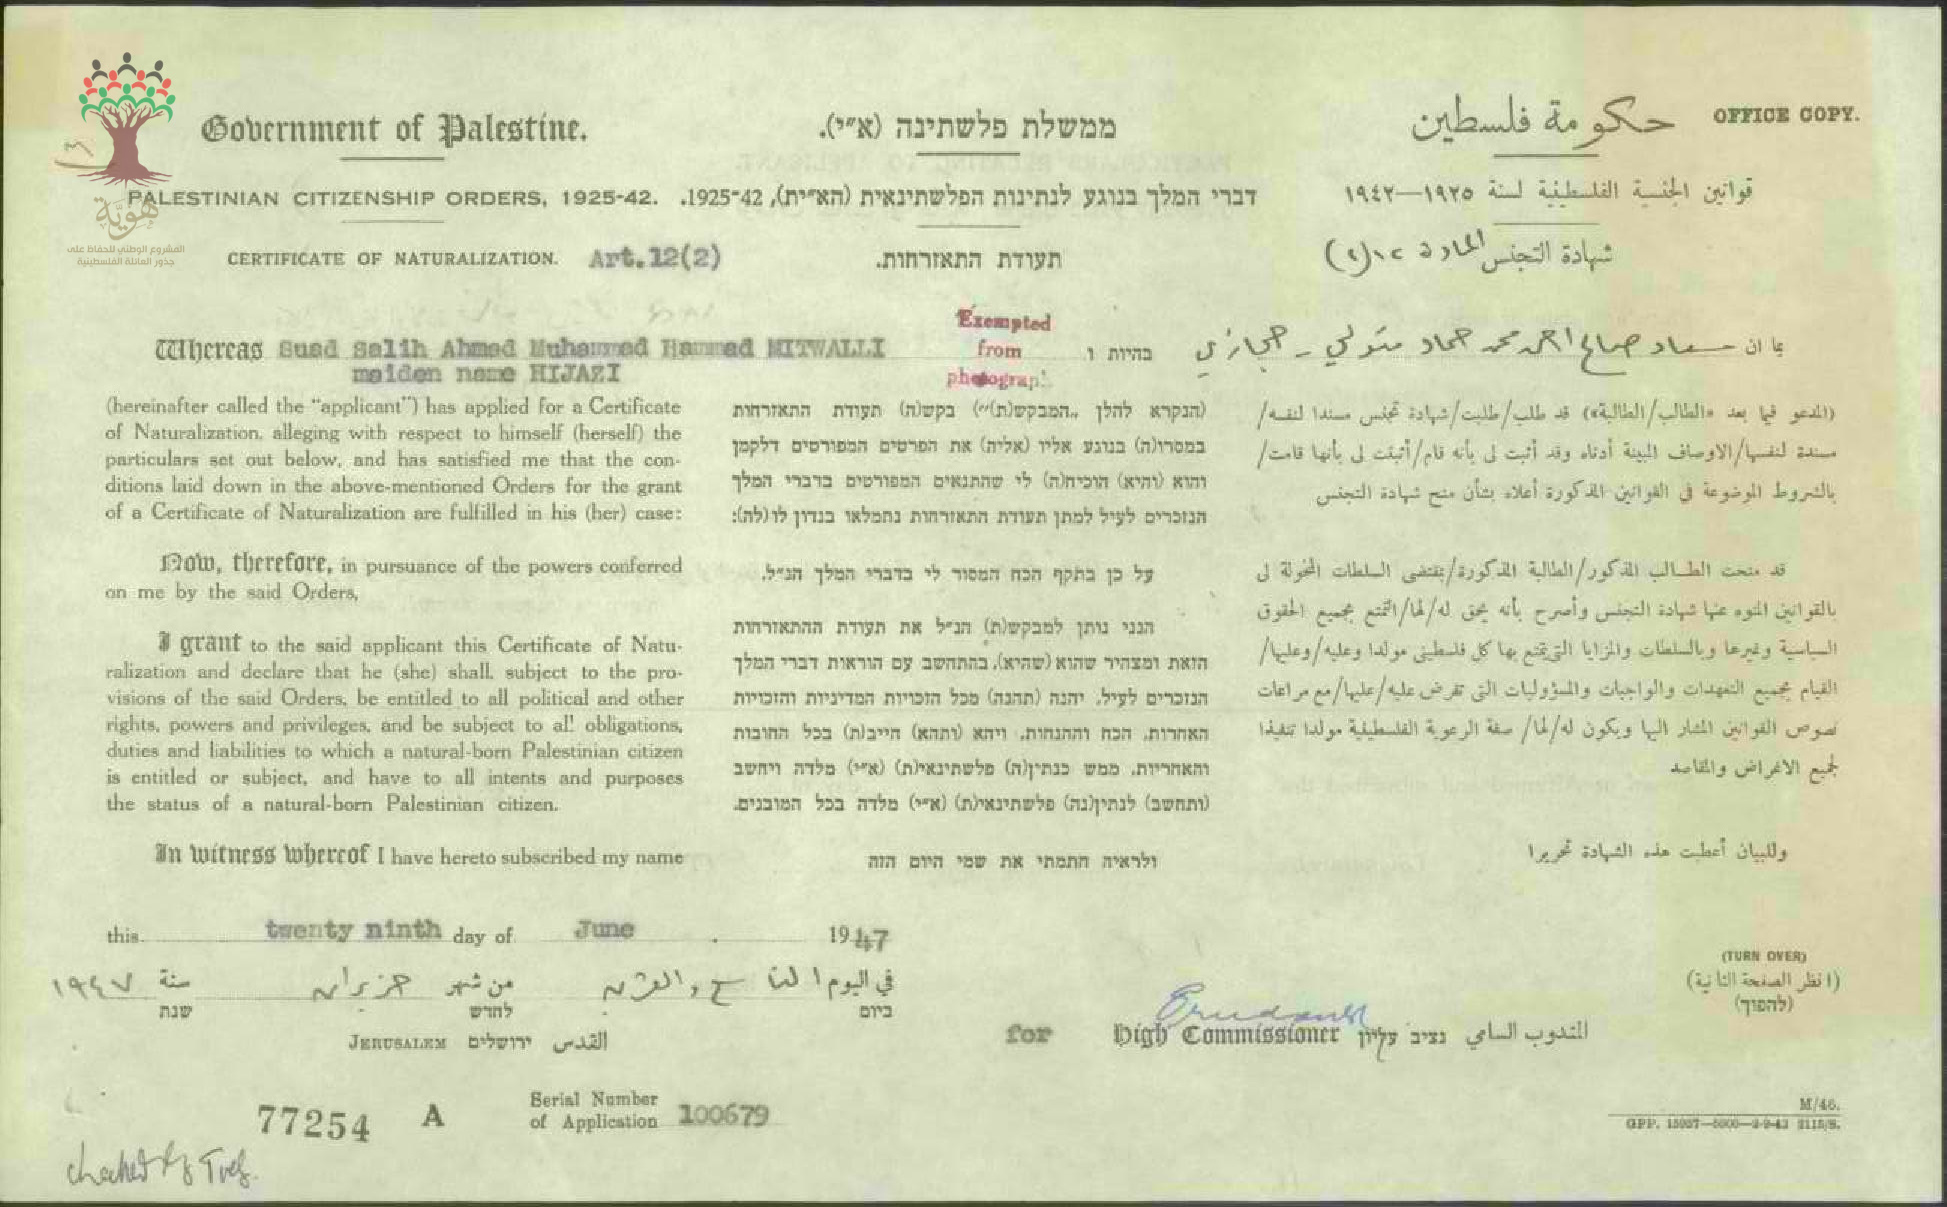 OFFICE COPY.
Government of Palestine.
ממשלת פלשתינה (א״י).
حكومة فلسطين
PALESTINIAN CITIZENSHIP ORDERS, 1925-42.
דברי המלך בנוגע לנתינות הפלשתינאית (הא״ית), 1925-42.
قوانين الجنسية الفلسطينية لسنة ١٩٢٥—١٩٤٢
هوية
المشروع الوطني للحفاظ على
جذور العائلة الفلسطينية
CERTIFICATE OF NATURALIZATION. Art.12(2)
תעודת התאזרחות.
شهادة التجنس المادة ١٢(٢)
Whereas Suad Salih Ahmed Muhammed Hammad MITWALLI
maiden name HIJAZI
(hereinafter called the "applicant") has applied for a Certificate
of Naturalization, alleging with respect to himself (herself) the
particulars set out below, and has satisfied me that the con-
ditions laid down in the above-mentioned Orders for the grant
of a Certificate of Naturalization are fulfilled in his (her) case:
Now, therefore, in pursuance of the powers conferred
on me by the said Orders,
I grant to the said applicant this Certificate of Natu-
ralization and declare that he (she) shall, subject to the pro-
visions of the said Orders, be entitled to all political and other
rights, powers and privileges, and be subject to all obligations,
duties and liabilities to which a natural-born Palestinian citizen
is entitled or subject, and have to all intents and purposes
the status of a natural-born Palestinian citizen.
In witness whereof I have hereto subscribed my name
Exempted
from
photograph.
בהיות ו
(הנקרא להלן ,,המבקש(ת)״) בקש(ה) תעודת התאזרחות
במסרו(ה) בנוגע אליו (אליה) את הפרטים המפורטים דלקמן
והוא (והיא) הוכיח(ה) לי שהתנאים המפורטים בדברי המלך
הנזכרים לעיל למתן תעודת התאזרחות נתמלאו בנדון לו (לה):
על כן בתקף הכח המסור לי בדברי המלך הנ״ל,
הנני נותן למבקש(ת) הנ״ל את תעודת ההתאזרחות
הזאת ומצהיר שהוא (שהיא), בהתחשב עם הוראות דברי המלך
הנזכרים לעיל, יהנה (תהנה) מכל הזכויות המדיניות והזכויות
האחרות, הכח וההנחות, ויהא (ותהא) חייב(ת) בכל החובות
והאחריות, ממש כנתין(ה) פלשתינאי(ת) (א״י) מלדה ויחשב
(ותחשב) לנתין(נה) פלשתינאי(ת) (א״י) מלדה בכל המובנים.
ולראיה חתמתי את שמי היום הזה
بما ان سعاد صالح احمد محمد حماد متولي - حجازي
(المدعو فيما بعد «الطالب/الطالبة») قد طلب/طلبت/شهادة تجنس مسندا لنفسه/
مسندة لنفسها/الاوصاف المبينة أدناه وقد أثبت لي بأنه قام/أثبتت لي بأنها قامت/
بالشروط الموضوعة في القوانين المذكورة أعلاه بشأن منح شهادة التجنس
قد منحت الطالب المذكور/الطالبة المذكورة/بمقتضى السلطات المخولة لي
بالقوانين المنوه عنها شهادة التجنس وأصرح بأنه يحق له/لها/التمتع بجميع الحقوق
السياسية وغيرها وبالسلطات والمزايا التي يتمتع بها كل فلسطيني مولدا وعليه/وعليها/
القيام بجميع التعهدات والواجبات والمسؤوليات التي تفرض عليه/عليها/مع مراعات
نصوص القوانين المشار اليها ويكون له/لها/ صفة الرعوية الفلسطينية مولدا تنفيذا
لجميع الاغراض والمقاصد
وللبيان أعطيت هذه الشهادة تحريرا
this twenty ninth day of June 1947
في اليوم التاسع والعشرين من شهر حزيران سنة ١٩٤٧
ביום לחדש שנת
JERUSALEM ירושלים القدس
for High Commissioner נציב עליון المندوب السامي
(TURN OVER)
(انظر الصفحة الثانية)
(להפוך)
77254 A
Serial Number
of Application 100679
checked by
M/46.
GPP. 15937—5000—2-9-43 2115/S.